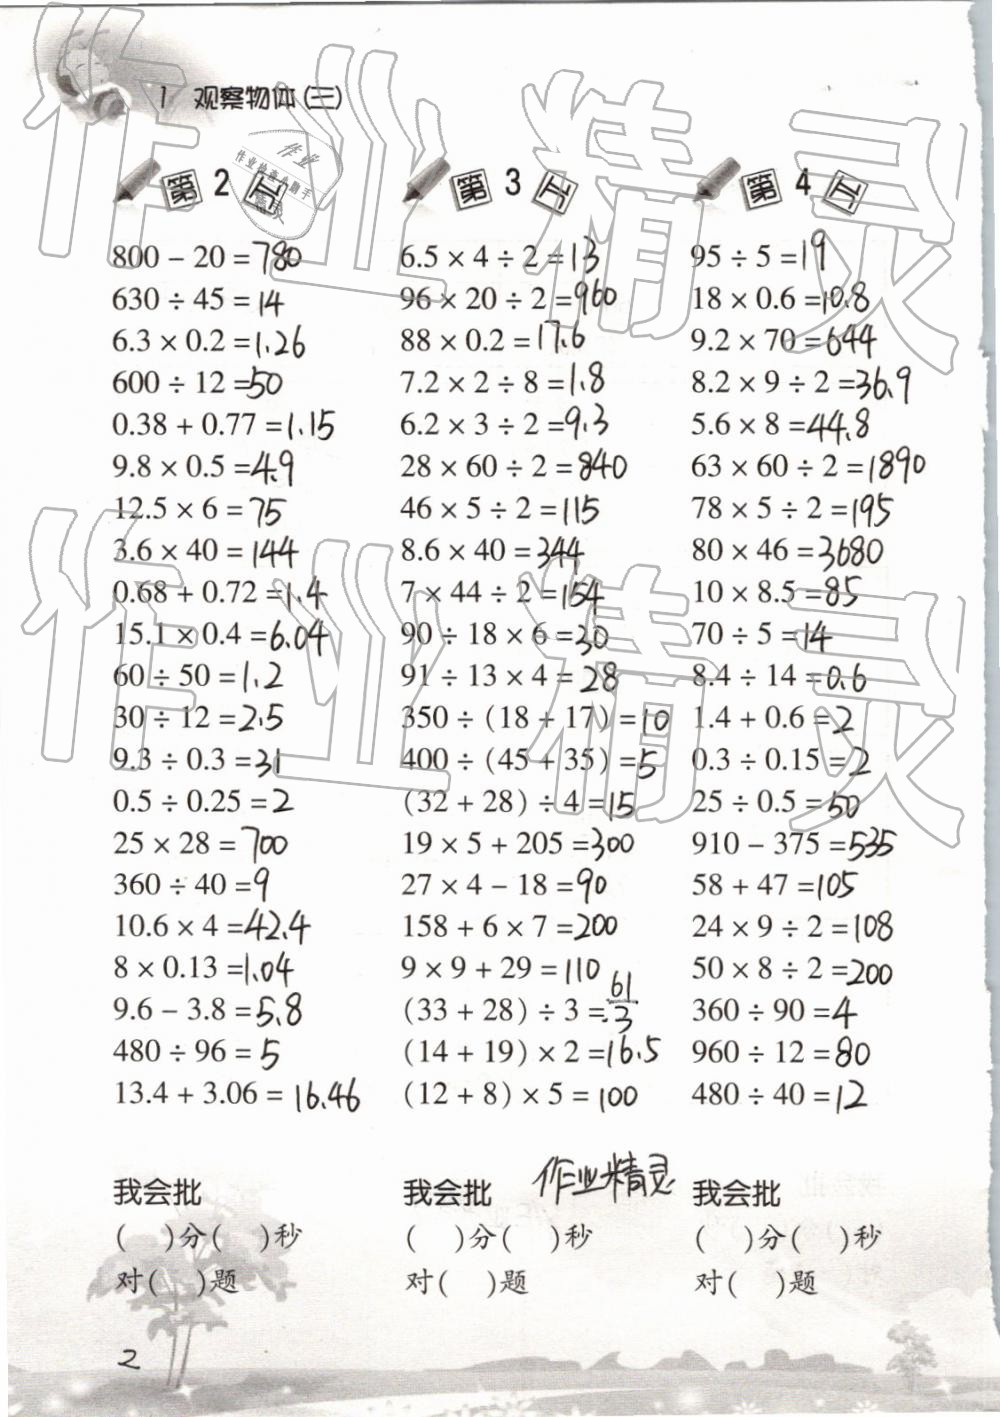 1 观察物体(三)
第2天
800 − 20 = 780
630 ÷ 45 = 14
6.3 × 0.2 = 1.26
600 ÷ 12 = 50
0.38 + 0.77 = 1.15
9.8 × 0.5 = 4.9
12.5 × 6 = 75
3.6 × 40 = 144
0.68 + 0.72 = 1.4
15.1 × 0.4 = 6.04
60 ÷ 50 = 1.2
30 ÷ 12 = 2.5
9.3 ÷ 0.3 = 31
0.5 ÷ 0.25 = 2
25 × 28 = 700
360 ÷ 40 = 9
10.6 × 4 = 42.4
8 × 0.13 = 1.04
9.6 − 3.8 = 5.8
480 ÷ 96 = 5
13.4 + 3.06 = 16.46
我会批
( )分( )秒
对( )题
第3天
6.5 × 4 ÷ 2 = 13
96 × 20 ÷ 2 = 960
88 × 0.2 = 17.6
7.2 × 2 ÷ 8 = 1.8
6.2 × 3 ÷ 2 = 9.3
28 × 60 ÷ 2 = 840
46 × 5 ÷ 2 = 115
8.6 × 40 = 344
7 × 44 ÷ 2 = 154
90 ÷ 18 × 6 = 30
91 ÷ 13 × 4 = 28
350 ÷ (18 + 17) = 10
400 ÷ (45 + 35) = 5
(32 + 28) ÷ 4 = 15
19 × 5 + 205 = 300
27 × 4 − 18 = 90
158 + 6 × 7 = 200
9 × 9 + 29 = 110
(33 + 28) ÷ 3 = 61/3
(14 + 19) × 2 = 16.5
(12 + 8) × 5 = 100
作业精灵
我会批
( )分( )秒
对( )题
第4天
95 ÷ 5 = 19
18 × 0.6 = 10.8
9.2 × 70 = 644
8.2 × 9 ÷ 2 = 36.9
5.6 × 8 = 44.8
63 × 60 ÷ 2 = 1890
78 × 5 ÷ 2 = 195
80 × 46 = 3680
10 × 8.5 = 85
70 ÷ 5 = 14
8.4 ÷ 14 = 0.6
1.4 + 0.6 = 2
0.3 ÷ 0.15 = 2
25 ÷ 0.5 = 50
910 − 375 = 535
58 + 47 = 105
24 × 9 ÷ 2 = 108
50 × 8 ÷ 2 = 200
360 ÷ 90 = 4
960 ÷ 12 = 80
480 ÷ 40 = 12
我会批
( )分( )秒
对( )题
2
作业精灵
作业精灵